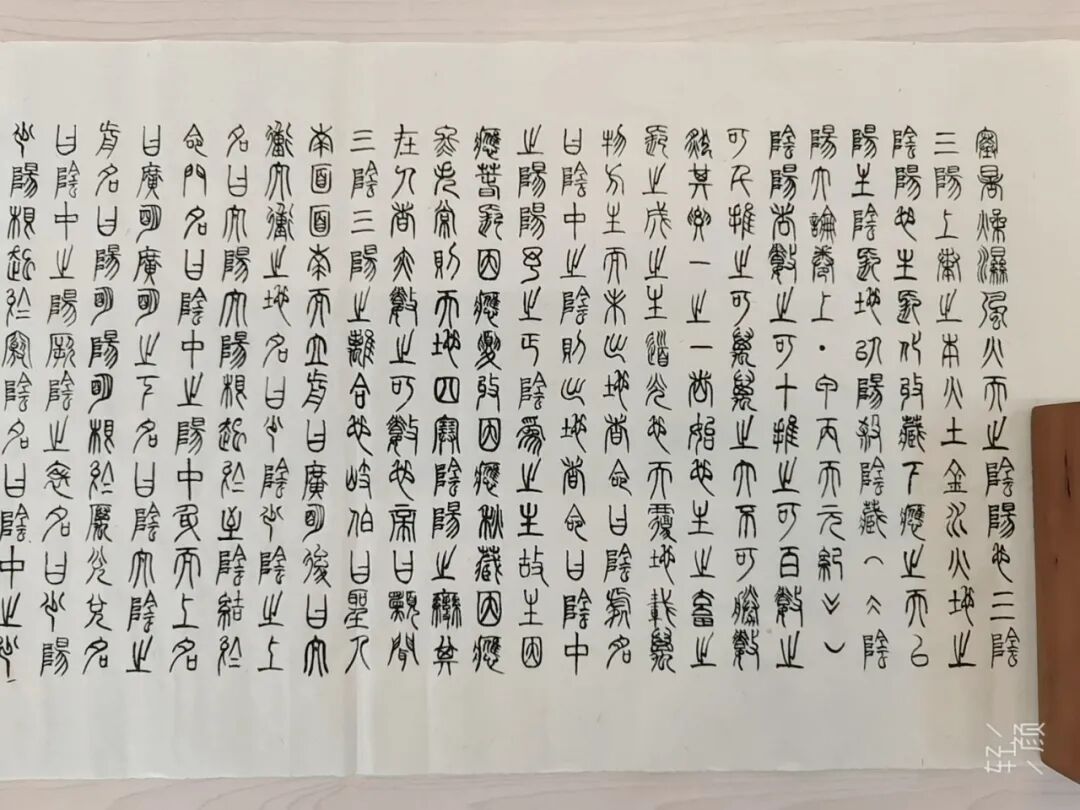 寒暑燥濕風火天之陰陽也三陰
三陽上奉之木火土金水火地之
陰陽也生長化收藏下應之天以
陽生陰長地以陽殺陰藏︵︽陰
陽大論卷上・甲丙天元紀︾︶
陰陽者數之可十推之可百數之
可千推之可萬萬之大不可勝數
然其要一之一者始也生之畜之
長之成之生道然也天覆地載萬
物方生而未出地者命曰陰處名
曰陰中之陰則出地者命曰陰中
之陽陽予之正陰爲之主故生因
應春長因應夏收因應秋藏因應
冬失常則天地四塞陰陽之變其
在人者亦數之可數也帝曰願聞
三陰三陽之離合也岐伯曰聖人
南面面南而立前曰廣明後曰太
衝太衝之地名曰少陰少陰之上
名曰太陽太陽根起於至陰結於
命門名曰陰中之陽中身而上名
曰廣明廣明之下名曰陰太陰之
前名曰陽明陽明根於厲兌兌名
曰陰中之陽厥陰之表名曰少陽
少陽根起於竅陰名曰陰中之少
轻颜